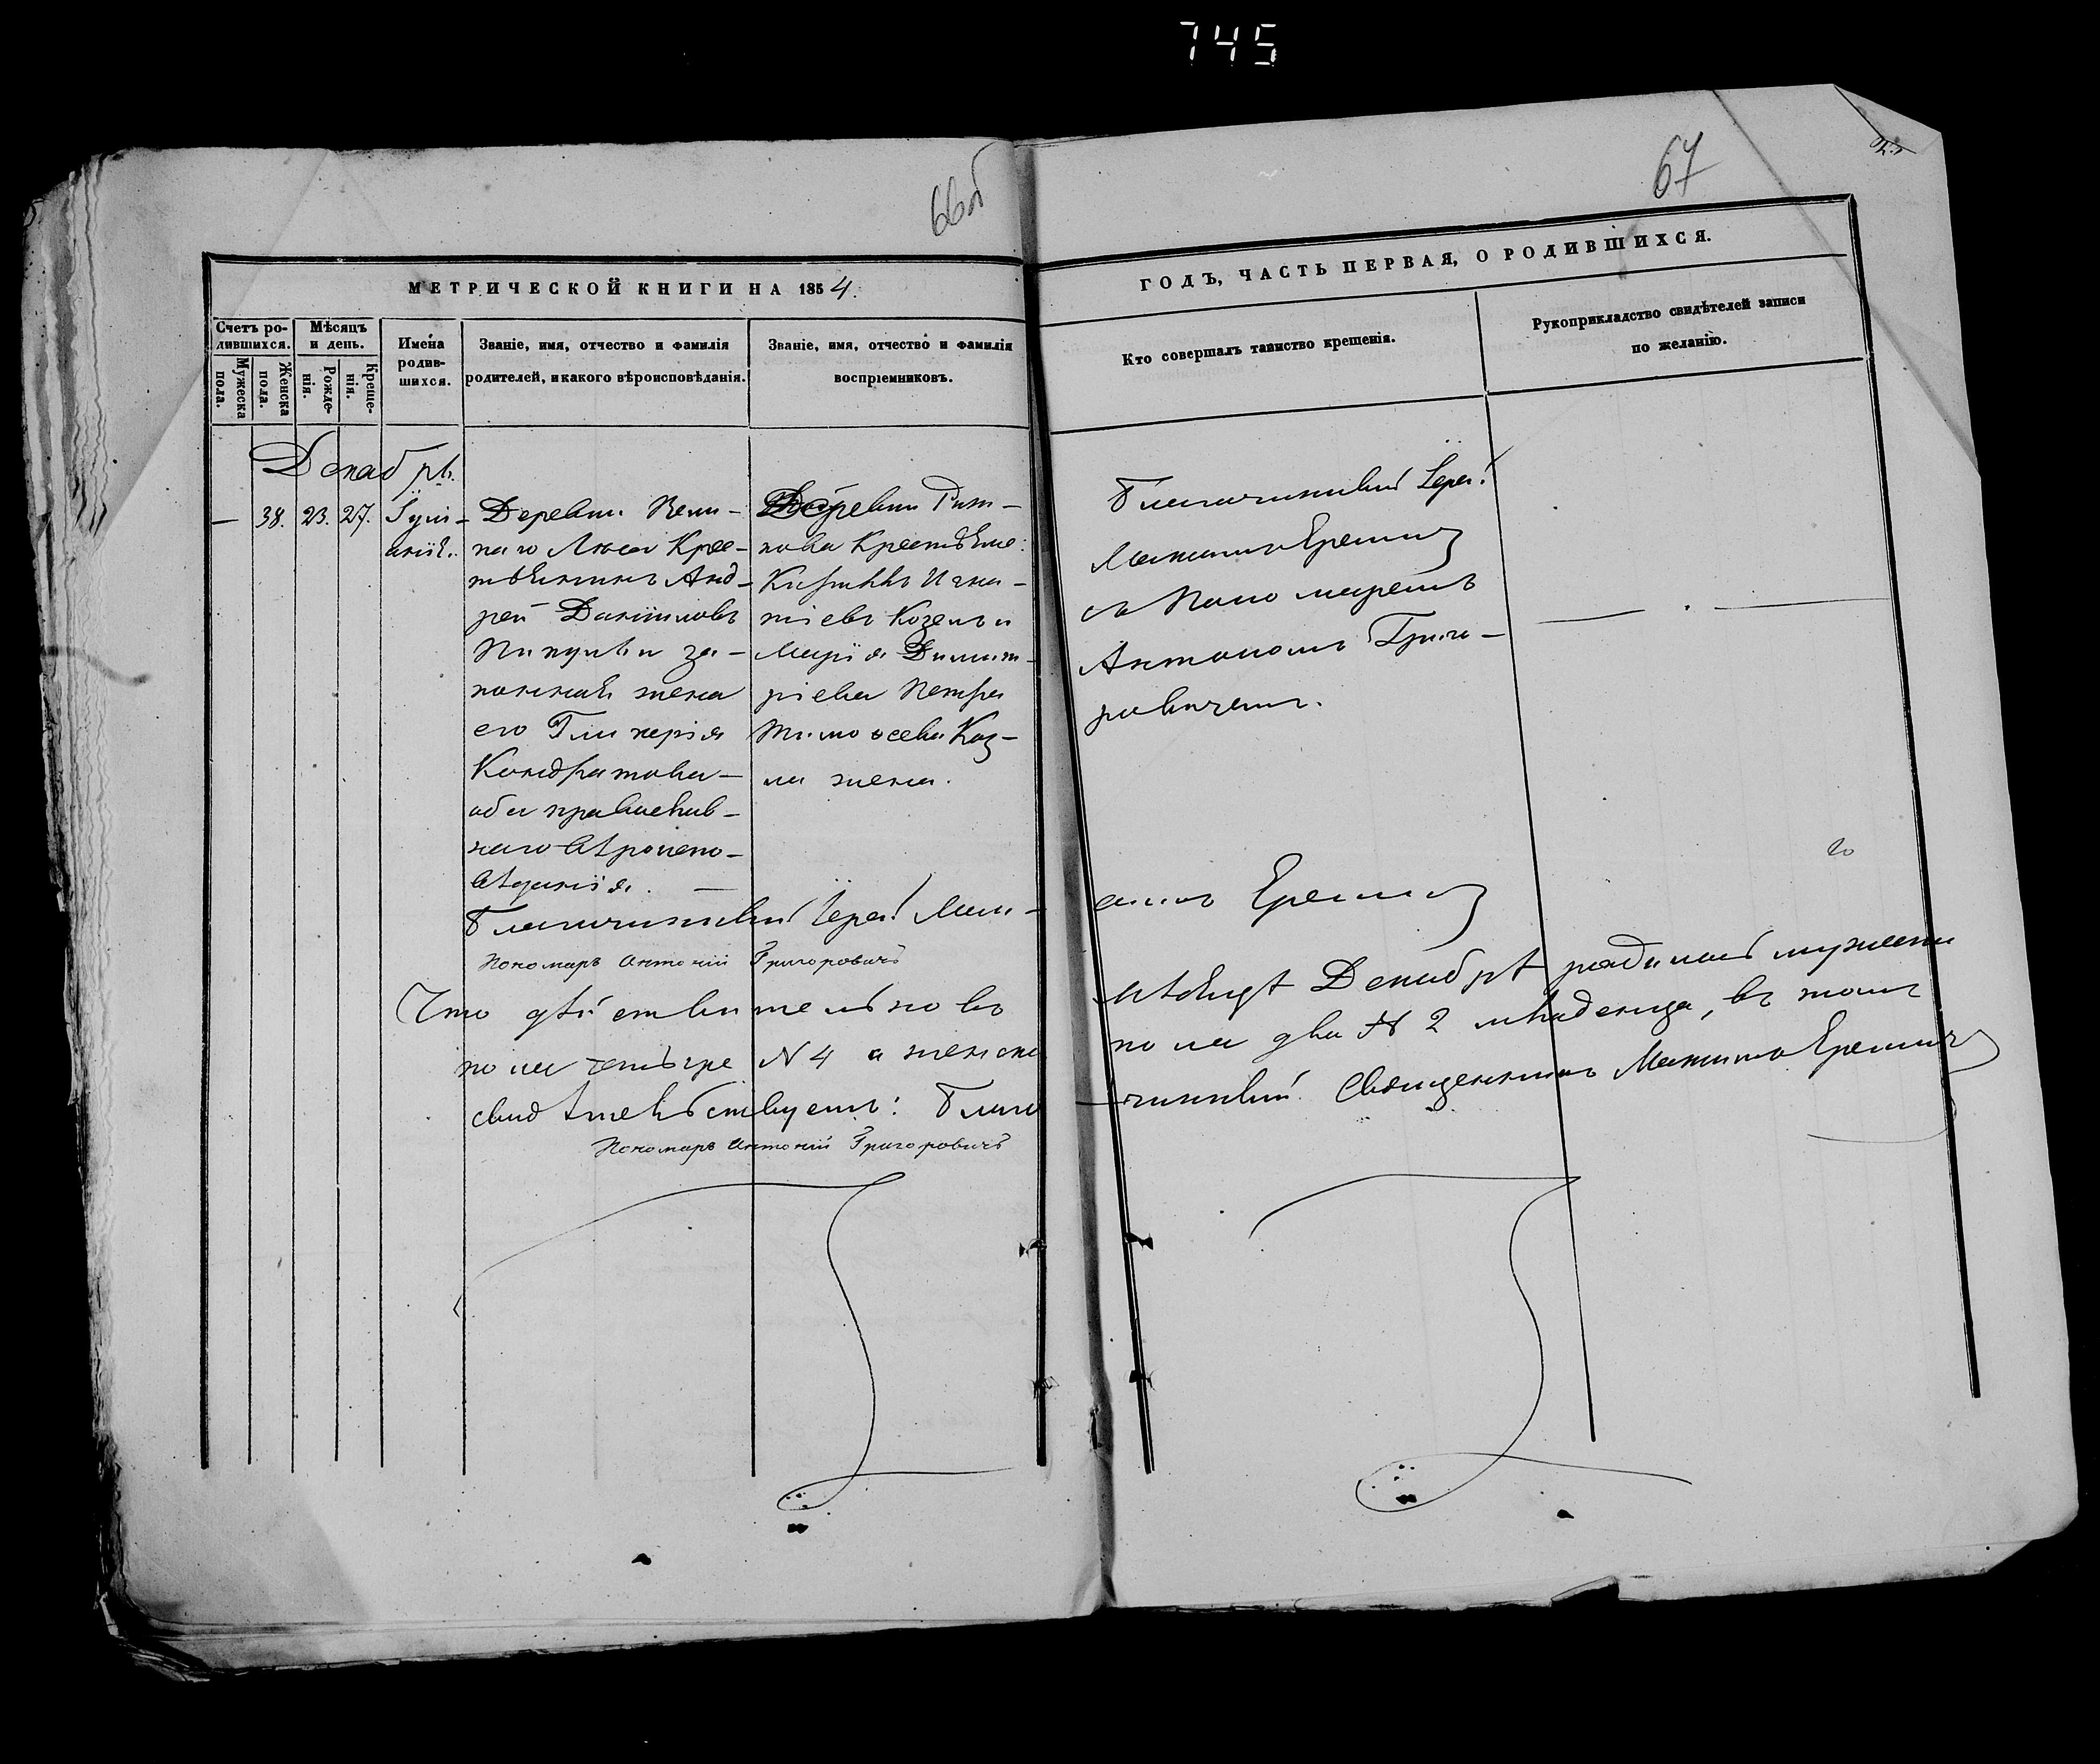 745
66об
67
МЕТРИЧЕСКОЙ КНИГИ НА 1854.
ГОДЪ, ЧАСТЬ ПЕРВАЯ, О РОДИВШИХСЯ.
Счетъ ро-
дившихся.
Мужеска
пола.
Женска
пола.
Мѣсяцъ
и день.
Рожде-
нія.
Креще-
нія.
Имена
родив-
шихся.
Званіе, имя, отчество и фамилія
родителей, и какого вѣроисповѣданія.
Званіе, имя, отчество и фамилія
воспріемниковъ.
Кто совершалъ таинство крещенія.
Рукоприкладство свидѣтелей записи
по желанію.
Декабрь.
— 38. 23. 27.
Іулі-
анія.
Деревни
Крес-
тьянинъ Анд-
рей Даніиловъ
и за-
конная жена
его Гликерія
Кондратова
оба православ-
наго вѣроиспо-
вѣданія. —
Деревни
Игна-
тіевъ Козелъ и
Марія Димит-
ріева Петра
Тимоѳеева Коз-
ла жена.
Благочинный Іерей
Максимъ Еремичъ
съ Пономаремъ
Антоніемъ Григо-
ровичемъ.
Благочинный Іерей Мак-
симъ Еремичъ
Пономарь Антоній Григоровичъ
Что дѣйствительно въ
мѣсяцѣ Декабрѣ родилось мужска
пола четыре N 4 а женска
пола два N 2 младенца, въ томъ
свидѣтельствуемъ: Благо-
чинный Священникъ Максимъ Еремичъ
Пономарь Антоній Григоровичъ